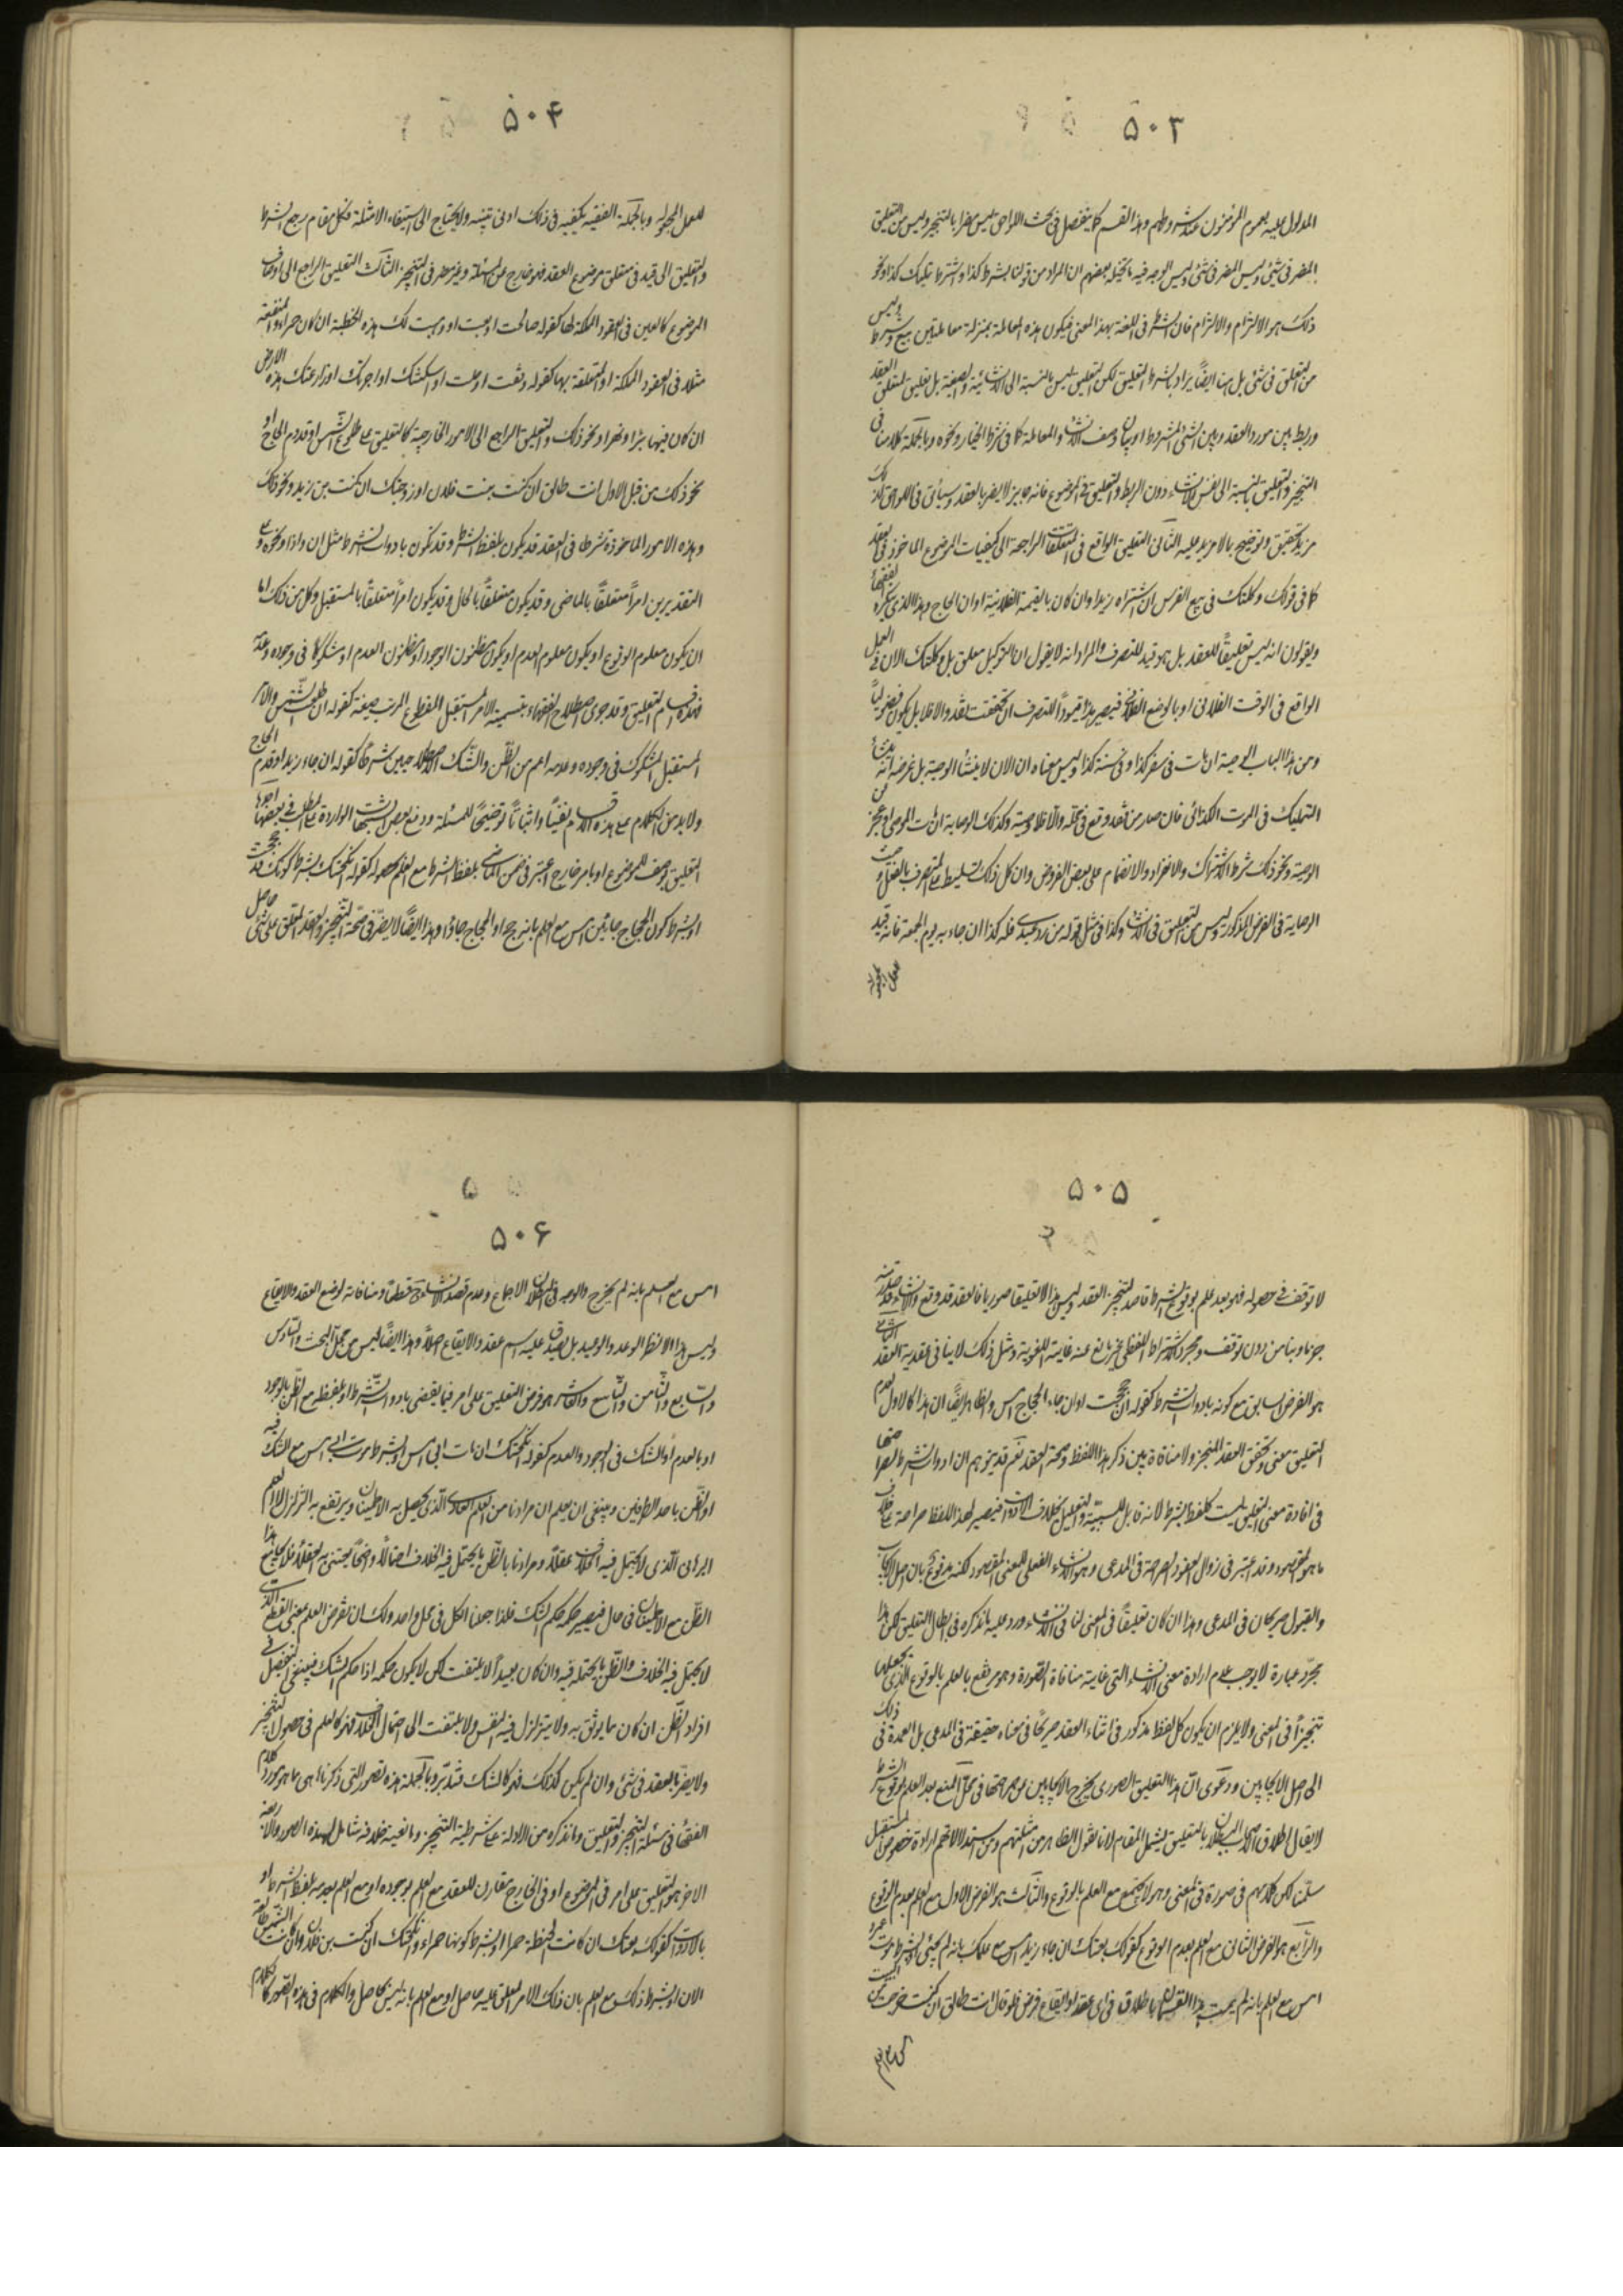 ۵۰۳
المدلول عليه بعموم المؤمنون عند شروطهم وهذا القسم كما يتفصل في بحث اللواحق ليس مضرا بالتنجيز وليس من التعليق
المضر في شئ وليس المضر في شئ وليس الوجه فيه ما يتخيله بعضهم ان المراد من قولنا بشرط كذا واشترط عليك كذا ونحو
ذلك هو الالتزام والالزام فان الشرط في اللغة بهذا المعنى فيكون هذه المعاملة بمنزلة معاملتين بيع وشرط وليس
من التعليق في شئ بل هنا ايضًا يراد بالشرط التعليق لكن التعليق ليس بالنسبة الى الانشائية والصيغة بل تعليق لمتعلق العقد
وربط بين مورد العقد وبين الشئ المشروط او بيان وصف الانشاء والمعاملة كما في شرط الخيار ونحوه وبالجملة كلامنا في
التنجيز والتعليق بالنسبة الى نفس الانشاء دون الربط والتعليق في الموضوع فانه جايز لا يضر بالعقد وسيأتي في اللواحق لذلك
مزيد تحقيق وتوضيح بما لا مزيد عليه الثاني التعليق الواقع في المتعلقات الراجعة الى كيفيات الموضوع الماخوذ في العقد
كما في قولك وكلتك في بيع الفرس ان اشتراه زيد او ان كان بالقيمة الفلانية او ان الحاج وهذا الذي يذكره الفقهاء
ويقولون انه ليس تعليقًا للعقد بل هو قيد للتصرف والمراد انه لا يقول ان التوكيل معلق بل وكلتك الان في العمل
الواقع في الوقت الفلاني او بالوضع الفلاني فيصير هذا قيودًا للتصرف ان تحققت نفذ والا فلا بل يكون فضوليًا
ومن هذا الباب الوصية ان مات في سفر كذا او في سنة كذا وليس معناه ان الان لا ينشأ الوصية بل غرضه انه ينشأ
التمليك في الموت الكذائي فان صار من ثمه وقع في محله والا فلا وصية وكذلك الوصاية ان مات الموصى او عجز عن
الوصية ونحو ذلك شرط الاشتراك والانفراد والانضمام على بعض الفروض وان كل ذلك تسليط على التصرف بالفعل حيث
الوصاية في الفرض المذكور وليس من التعليق في الانشاء وكذا في مثل قوله من رد عبدى فله كذا ان جاء به يوم الجمعة فانه قيد
للعمل المجعول له
۵۰۴
للعمل المجعول له وبالجملة الفقيه يكفيه في ذلك ادنى تنبيه ولا يحتاج الى استيفاء الامثلة فكل مقام رجع الشرط
والتعليق الى قيد في متعلق موضوع العقد فهو خارج عن المسئلة وغير مضر في التنجيز الثالث التعليق الراجع الى اوصاف
الموضوع كالعين في العقود المملكة لها كقوله صالحت او بعت او وهبت لك هذه الحنطة ان كان حمراء والمنفعة
مثلا في العقود المملكة او المتعلقة بها كقوله وقفت او وصلت او اسكنتك او اجرتك او زارعتك هذه الارض
ان كان فيها بئرا ونهرا ونحو ذلك والتعليق الراجع الى الامور الخارجية كالتعليق على طلوع الشمس او قدوم الحاج او
نحو ذلك من قبل الاول انت طالق ان كنت بنت فلان او زوجتك ان كنت بن زيد ونحو ذلك
وهذه الامور الماخوذة شرطا في العقد قد يكون بلفظ الشرط وقد تكون بادوات الشرط مثل ان واذا ونحوه وعلى
التقديرين امرًا متعلقًا بالماضى وقد يكون متعلقًا بالحال وقد يكون امرًا متعلقًا بالمستقبل وكل من ذلك اما
ان يكون معلوم الوقوع او يكون معلوم العدم او يكون مظنون الوجود او مظنون العدم او مشكوكا في وجوده وعدمه
فهذه اقسام التعليق وقد جرى اصطلاح الفقهاء بتسمية الامر المستقبل المقطوع المرتب صيغة كقوله ان طلعت الشمس والامر
المستقبل المشكوك في وجوده وعدمه اعم من الظن والشك الاصطلاحيين شرطا كقوله ان جاء زيد او قدم الحاج
ولا بد من الكلام على هذه الاقسام نفيًا واثباتًا توضيحًا للمسئلة ودفع بعض الشبهات الواردة على المطلب في بعضها احدها
التعليق بوصف للموضوع او بامر خارج اعتبر في ضمن الماضى بلفظ الشرط مع العلم بحصوله كقوله انكحتك بشرط كونك قد حججت
او بشرط كون الحجاج جائين امس مع العلم بانه حج او الحجاج جاؤا وهذا ايضًا لا يضر في صحة التنجيز والعقد المعلق على شئ حاصل
۵۰۵
لا توقف في حصوله فهو بعد علم بوقوع الشرط قاصد لتنجيز العقد وليس هذا الا تعليقا صوريا فالعقد قد وقع والانشاء قد صدر منه
جزما وبتا من دون توقف ومجرد الاشتراط اللفظي غير مانع عنه غايته اللغوية ومثل ذلك لا ينافى عقدية العقد الثاني
هو الفرض السابق مع كونه بادوات الشرط كقوله ان حججت او ان جاء الحجاج امس والظاهر ايضًا ان هذا كالاول لعدم
التعليق معنى وتحقق العقد المنجز ولا منافاة بين ذكر هذا اللفظ وصحة العقد نعم قد يتوهم ان ادوات الشرط لصراحتها
في افادة معنى التعليق ليست كلفظ الشرط لانه قابل للسببية والتعليل بخلاف الادوات فيصير لهذا اللفظ صراحة على خلاف
ما هو المقصود وقد اعتبر في زوال العقود الصراحة في المدعى وهو الانشاء الفعلى للمعنى المقصود لكنه مدفوع بان اصل الايجاب
والقبول صريحان في المدعى وهذا ان كان تعليقًا في المعنى لنافى الانشاء ورد عليه ما نذكره في ابطال التعليق لكن هذا
مجرد عبارة لا يوجب عدم ارادة معنى الانشاء التى غايته منافاة الصورة وهو يرتفع بالعلم بالوقوع الذى يجعلها
تنجيزًا في المعنى ولا يلزم ان يكون كل لفظ مذكور في اثناء العقد صريحًا في معناه حقيقة في المدعى بل العمدة في ذلك
الى اصل الايجابين ودعوى ان هذا التعليق الصورى يخرج الايجابين عن صراحتها في محل المنع بعد العلم بوقوع الشرط
لا يقال اطلاق الاصحاب البطلان بالتعليق يشمل المقام لانا نقول الظاهر من امثلتهم ومن استدلالاتهم ارادة خصوص المستقبل
سلمنا لكن كلامهم في صورة في المعنى وهو لا يجتمع مع العلم بالوقوع والثالث هو الفرض الاول مع العلم بعدم الوقوع
والرابع هو الفرض الثاني مع العلم بعدم الوقوع كقولك بعتك ان جاء زيد امس مع علمك بانه لم يجئ او بشرط موت عمرو
امس مع العلم بانه لم يمت هذا القسمان باطلان في اى عقد او ايقاع فرض فلو قال انت طالق ان كنت خرجت من البيت
۵۰۶
امس مع العلم بانه لم يخرج والوجه في البطلان الاجماع وعدم قصد الانشاء ح قطعًا ومنافاته لوضع العقد والايقاع
وليس هذا الا نظير الوعد والوعيد بل لا يصدق عليه اسم عقد والايقاع اصلًا وهذا ايضًا ليس من محل البحث والسادس
والسابع والثامن والتاسع والعاشر هو فرض التعليق على امر فيما يقضى بادوات الشرط او بلفظه مع الظن بالوجود
او بالعدم او الشك في الوجود والعدم كقوله انكحتك ان مات ابى امس او بشرط موت ابى امس مع الشك فيه
او الظن باحد الطرفين وينبغى ان يعلم ان مرادنا من العلم العادى الذى يحصل به الاطمينان ويرتفع به التزلزل لا العلم
البرهانى الذى لا يحتمل فيه الخلاف عقلًا ومرادنا بالظن ما يحتمل فيه الخلاف احتمالًا واضحًا يعتنى به العقلاء فلا يجامع هذا
الظن مع الاطمينان في حال فيصير حكمه حكم الشك فلذا جعلنا الكل في محل واحد ولك ان تفرض العلم بمعنى القطع الذى
لا يحتمل فيه الخلاف والظن ما يحتمله فيه وان كان بعيدًا لا يلتفت لكن لا يكون حكمه اذا حكم الشك فينبغى التفصيل في
افراد الظن ان كان مما يوثق به ولا يتزلزل فيه النفس ولا يلتفت الى احتمال الخلاف فهو كالعلم في حصول التنجيز
ولا يضر بالعقد في شئ وان لم يكن كذلك فهو كالشك فتدبر وبالجملة هذه الصور التى ذكرناها هى مما هو مورد كلام
الفقهاء في مسئلة التنجيز والتعليق وما نذكره من الادلة على شرطية التنجيز ومانعية خلافه شامل لهذه الصور والاربعة
الاخر هو التعليق على امر في الموضوع او في الخارج مقارن للعقد مع العلم بوجوده او مع العلم بعدمه بلفظ الشرط او
بالادوات كقولك بعتك ان كانت الحنطة حمراء او بشرط كونها حمراء وانكحتك ان كنت بن فلان وان كانت الشمس طالعة
الان او بشرط ذلك مع العلم بان ذلك الامر المعلق عليه حاصل او مع العلم بانه ليس بحاصل والكلام في هذه الصور كالكلام